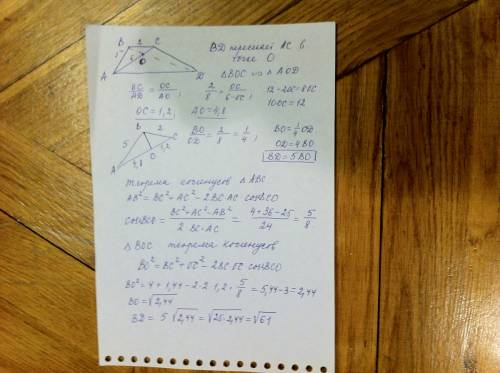 B 2 C
5 6 O
A D
BD пересекает AC в
точке O
△BOC ∾ △AOD
BC/AD = OC/AO ; 2/8 = OC/6-OC ; 12-2OC=8OC
10OC=12
OC=1,2 AO=4,8
B 2 C
5 O 1,2
A 4,8
BO/OD = 2/8 = 1/4 ; BO=1/4 OD
OD=4BO
BD=5BO
Теорема косинусов △ABC
AB²=BC²+AC²-2BC·AC·cosBCO
cosBCO = BC²+AC²-AB²/2·BC·AC = 4+36-25/24 = 5/8
△BOC теорема косинусов
BO²=BC²+OC²-2BC·OC·cosBCO
BO²=4+1,44-2·2·1,2·5/8=5,44-3=2,44
BO=√2,44
BD= 5√2,44=√25·2,44=√61